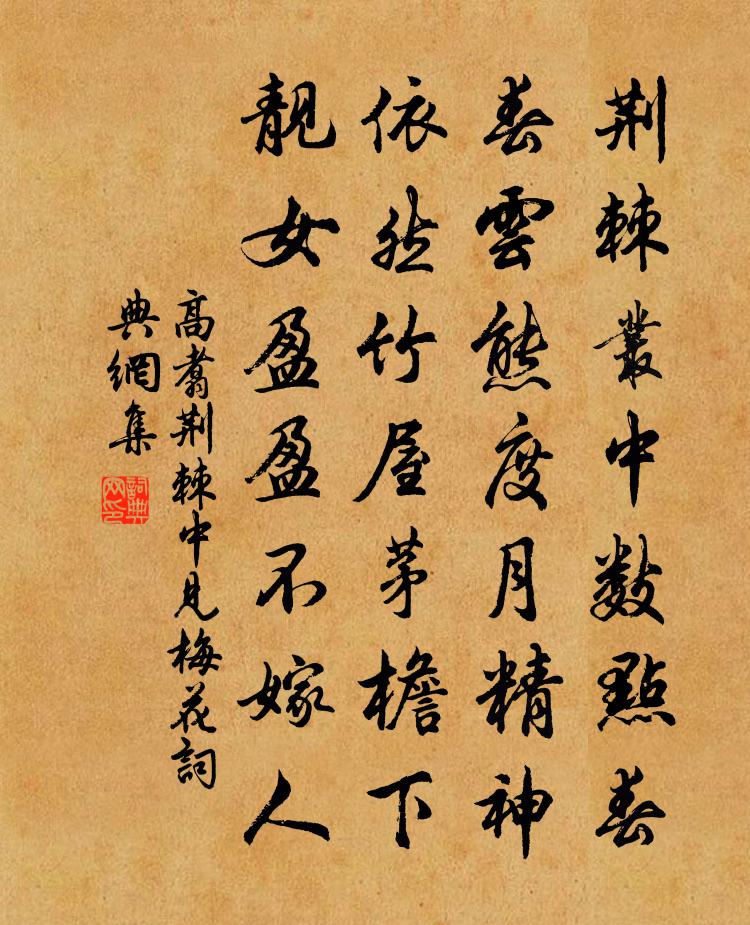 荆棘叢中數點春
春雲態度月精神
依然竹屋茅檐下
靚女盈盈不嫁人
高翥荆棘中見梅花詞
典網集
詞典网印